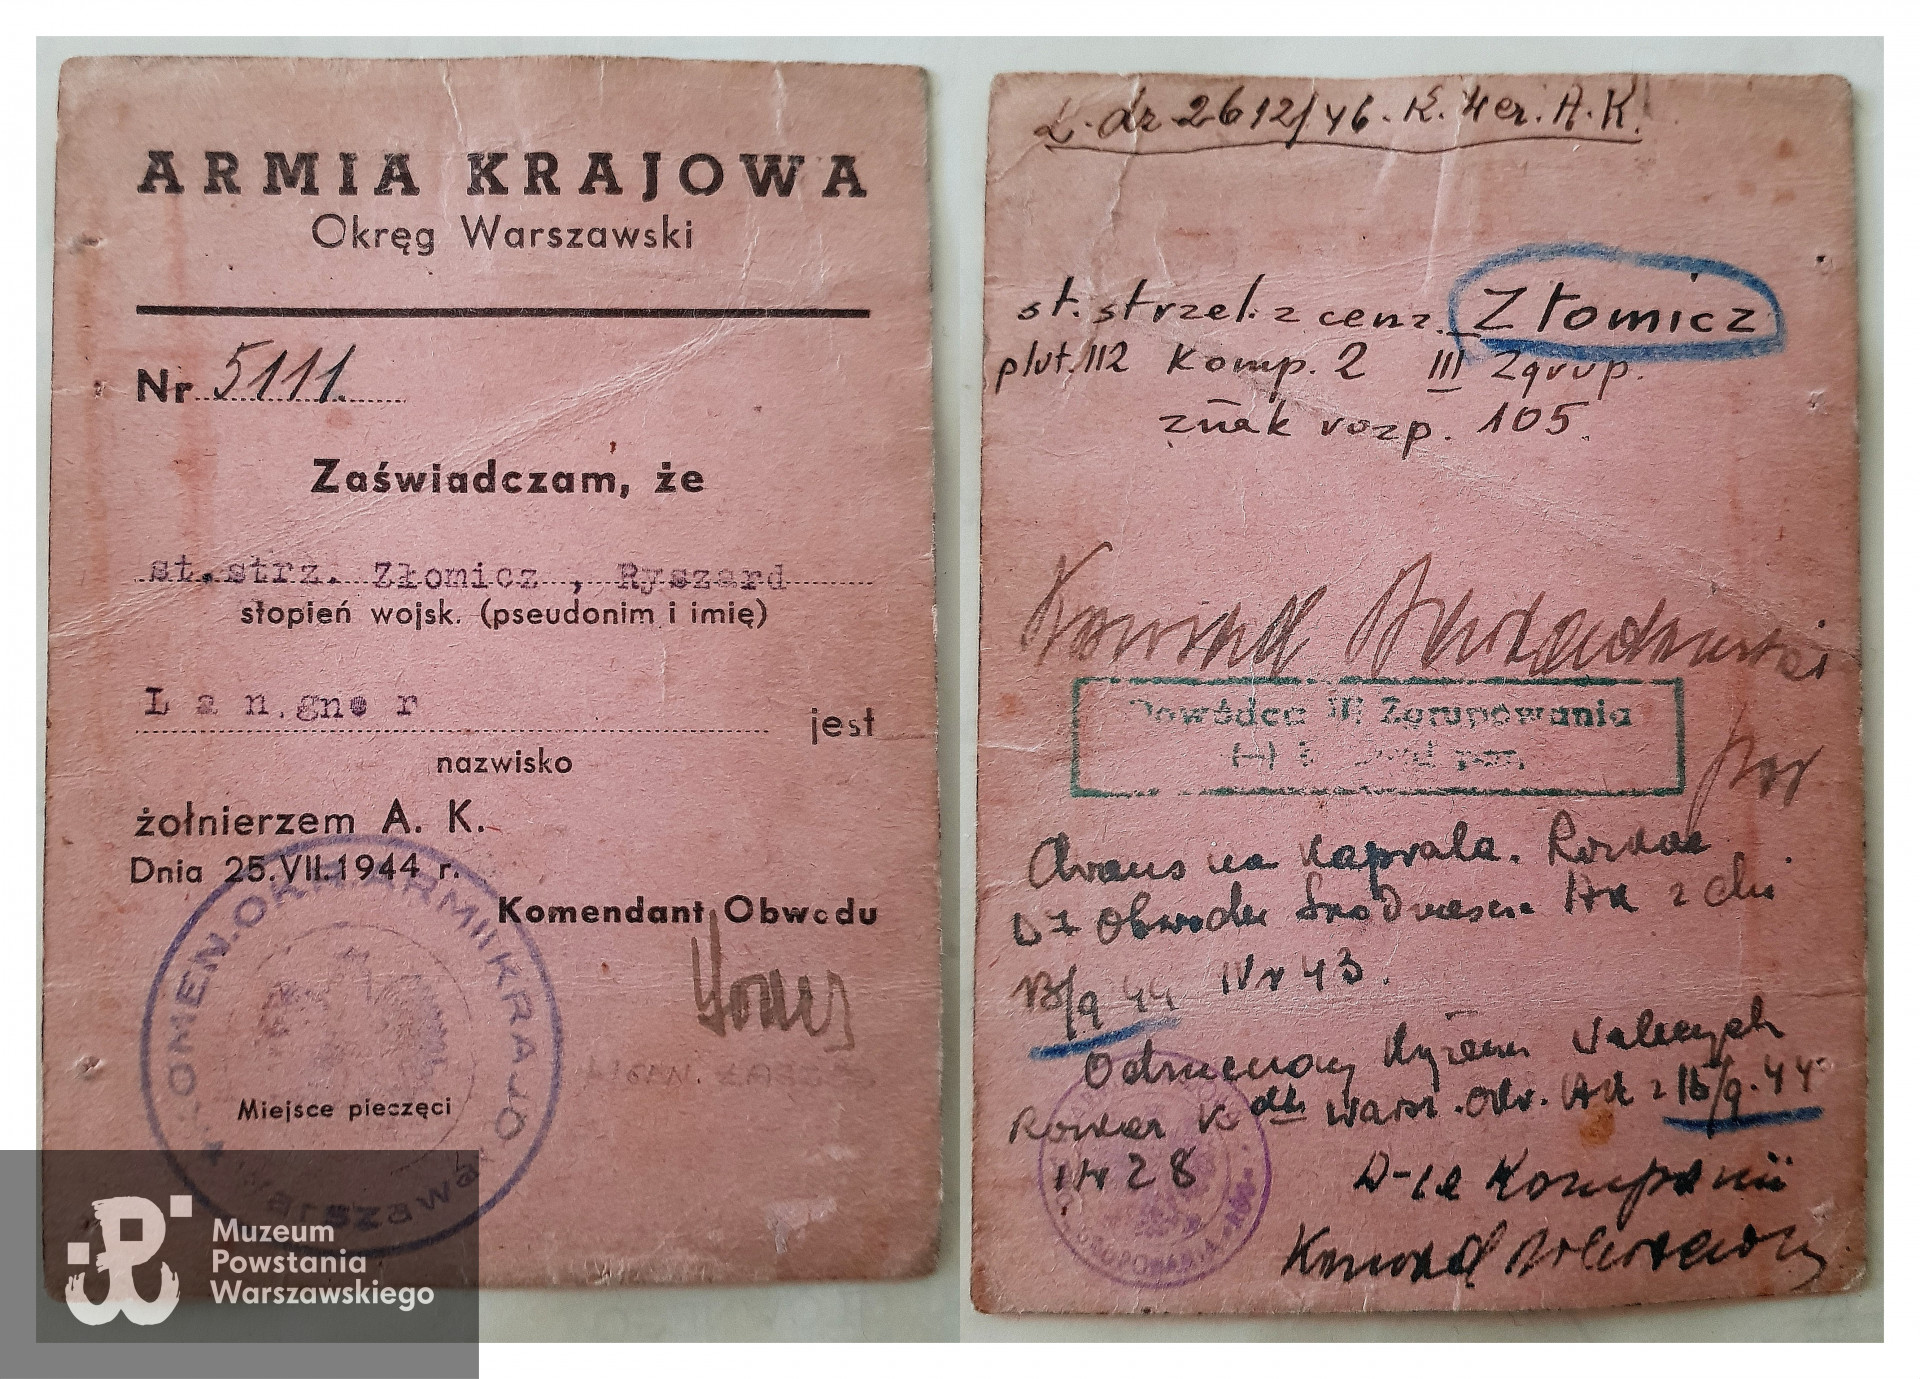 ARMIA KRAJOWA
Okręg Warszawski
Nr 5111.
Zaświadczam, że
st.strz. Złomicz , Ryszard
stopień wojsk. (pseudonim i imię)
L a n.gne r jest
nazwisko
żołnierzem A. K.
Dnia 25.VII.1944 r.
Komendant Obwodu
KOMEN.OKR.ARMII KRAJO
Warszawa
Miejsce pieczęci
Muzeum
Powstania
Warszawskiego
L. dz 2612/46. K. Wer. A.K.
st. strzel. z cenz. Złomicz
plut. 112 Komp. 2 III Zgrup.
znak rozp. 105.
Konrad
Dowódca III Zgrupowania
(-) por.
por
Avans na kaprala. Rozkaz
D-z Obwodu Śródmieście AK z dn
13/9 44 Nr 43.
Odznaczony Krzyżem Walecznych
Rozkaz K dta Warsz. Okr. AK z 16/9.44
Nr 28
D-ca Kompanii
Konrad